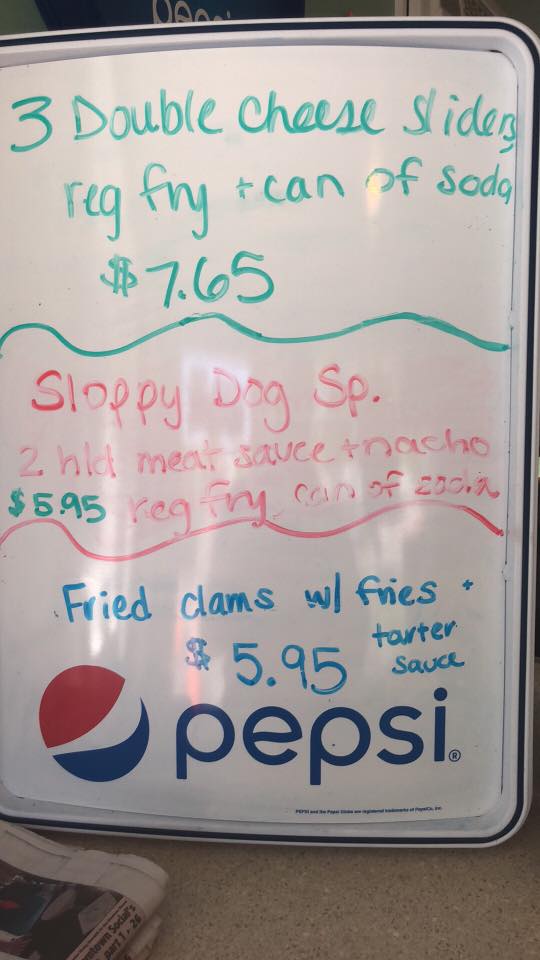 3 Double Cheese Sliders
reg fry + can of soda
$7.65
Sloppy Dog Sp.
2 hld meat sauce + nacho
$5.95 reg fry, can of soda
Fried clams w/ fries +
tarter
$ 5.95 sauce
pepsi®
PEPSI and the Pepsi Globe are registered trademarks of PepsiCo, Inc.
part 1 • 26